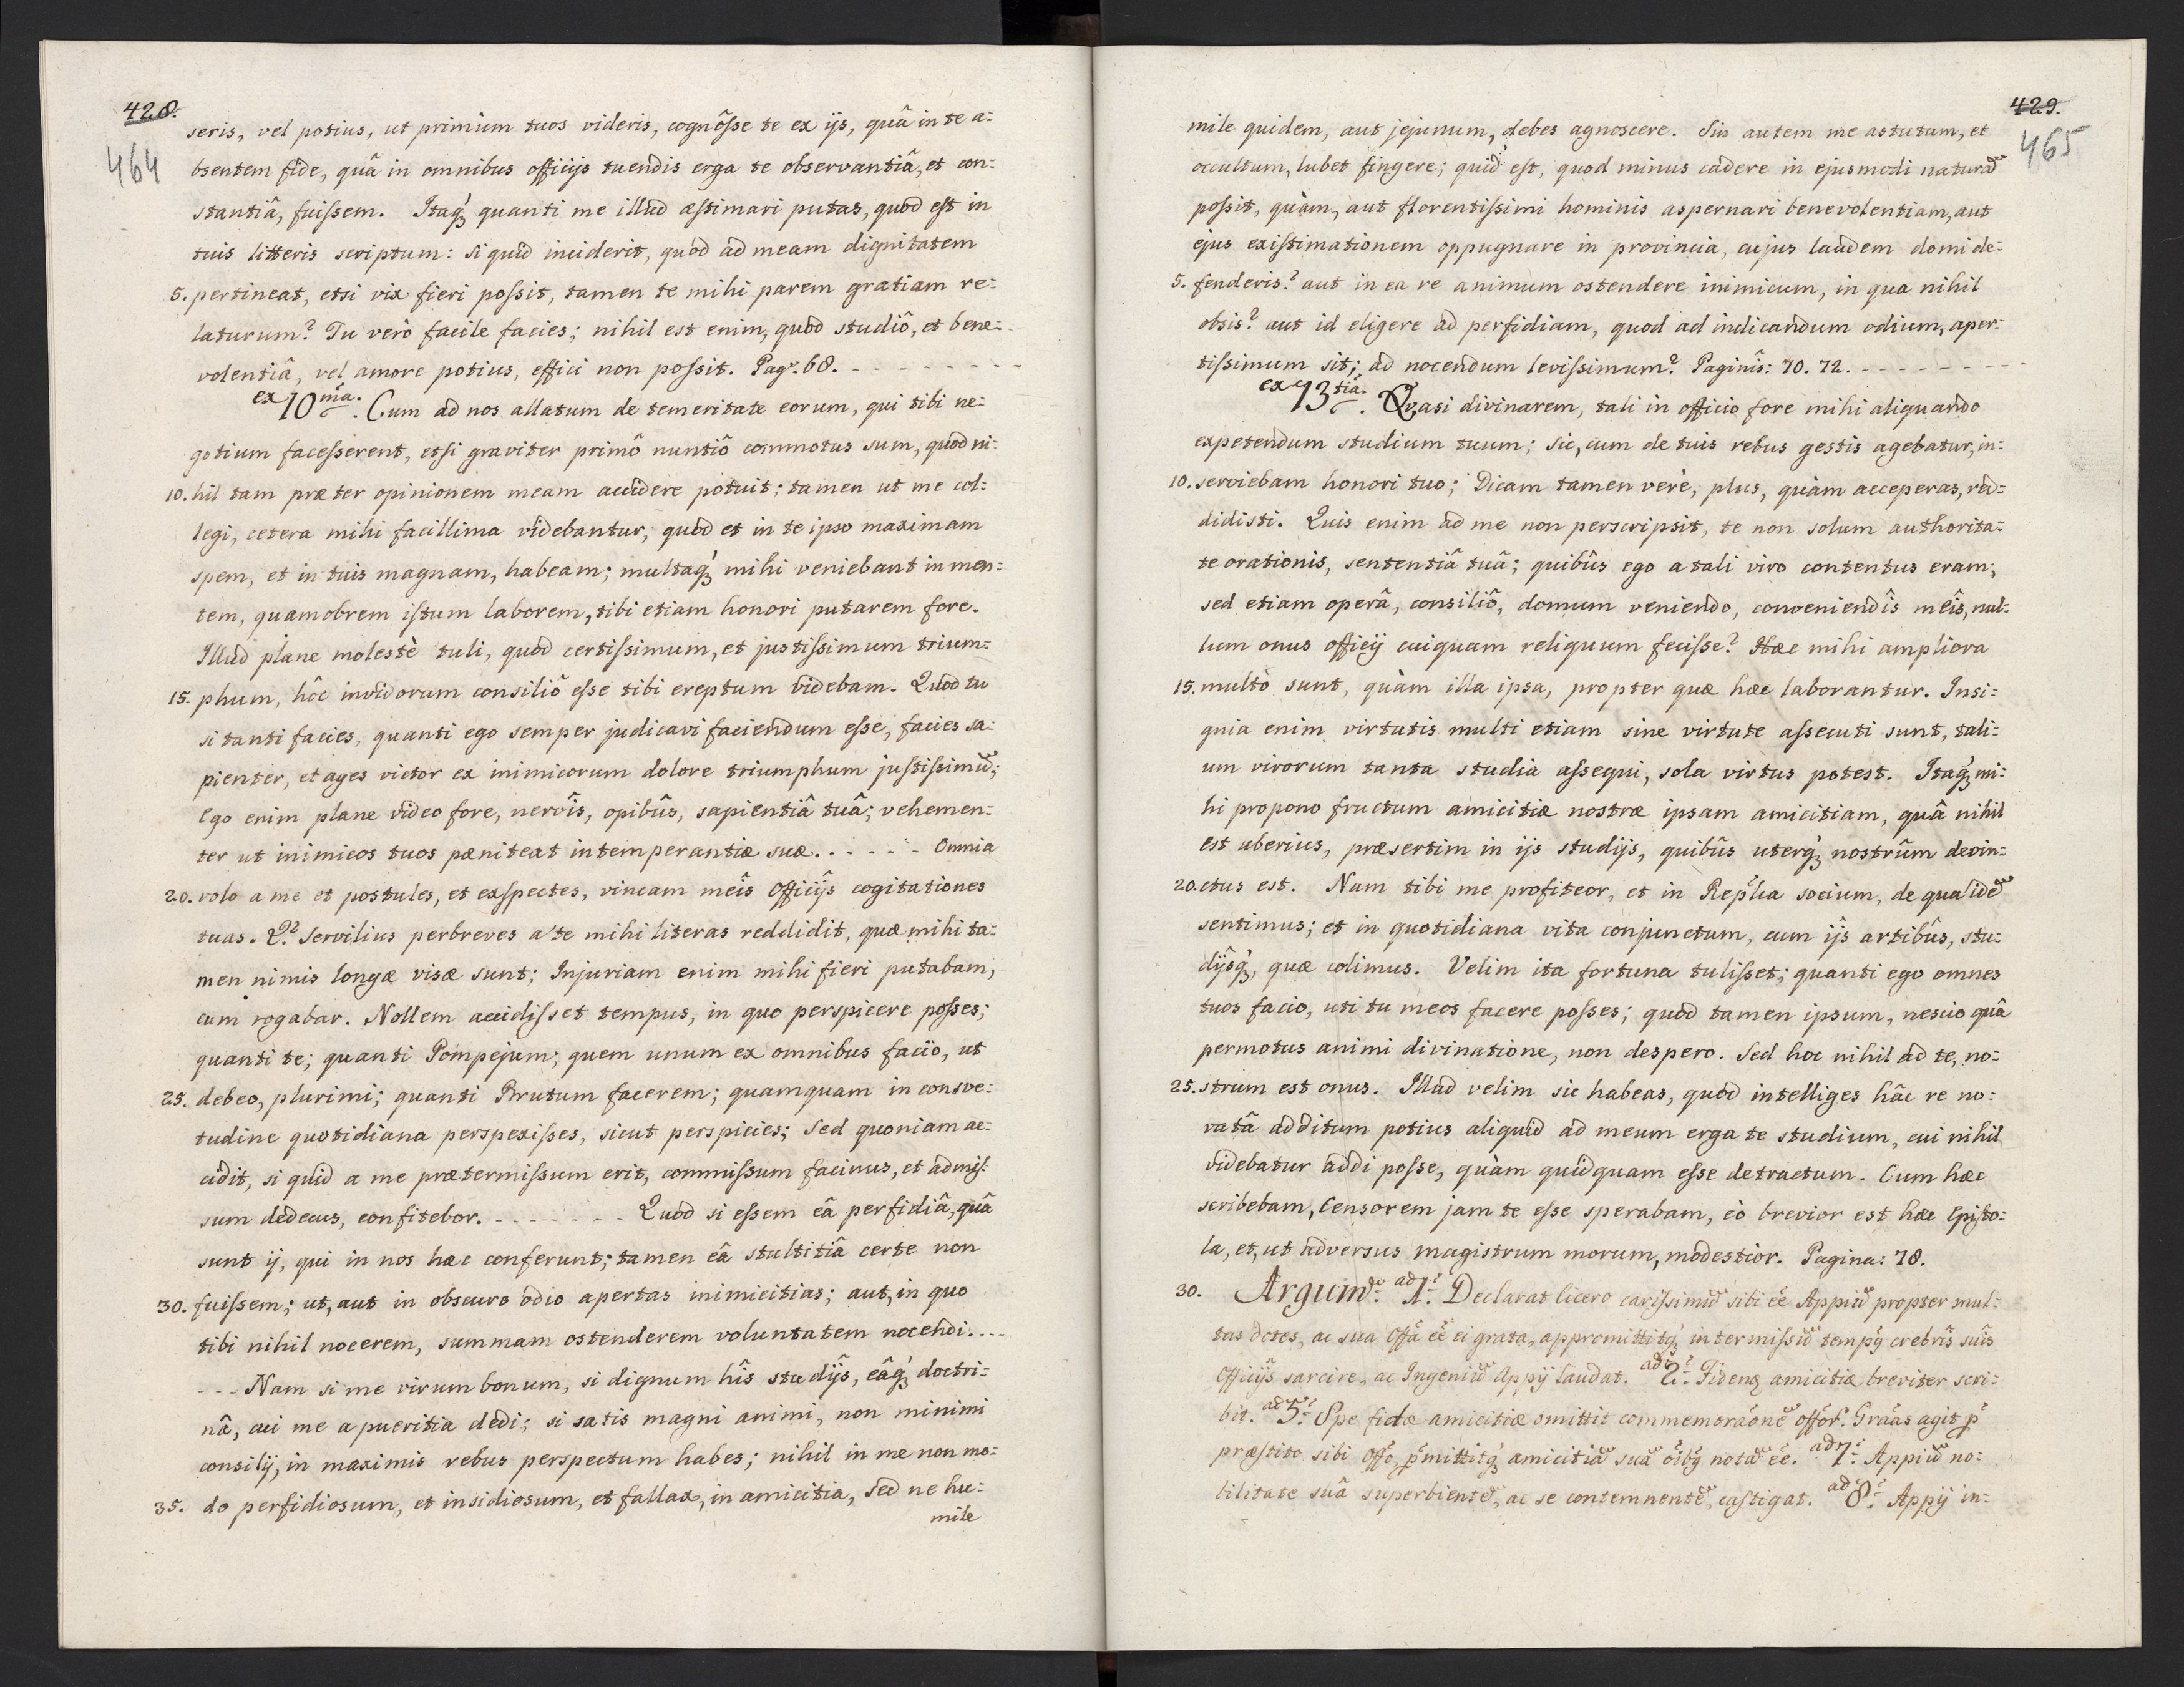 428.
464
seris, vel potius, ut primùm tuos videris, cognôsse te ex ijs, quâ in te a=
bsentem fide, quâ in omnibus officijs tuendis erga te observantiâ, et con=
stantiâ, fuissem. Itaq́ʒ quanti me illud æstimari putas, quod est in
tuis litteris scriptum: si quid inciderit, quod ad meam dignitatem
5. pertineat, etsi vix fieri possit, tamen te mihi parem gratiam re=
laturum? Tu verò facile facies; nihil est enim, quod studiô, et bene=
volentiâ, vel amore potius, effici non possit. Pag. 68. - - - - - - - -
ex 10ma. Cum ad nos allatum de temeritate eorum, qui tibi ne=
gotium facesserent, etsi graviter primô nuntiô commotus sum, quod ni=
10. hil tam præter opinionem meam accidere potuit; tamen ut me col=
legi, cetera mihi facillima videbantur; quod et in te ipso maximam
spem, et in tuis magnam, habeam; multaq́ʒ mihi veniebant in men=
tem, quamobrem istum laborem, tibi etiam honori putarem fore.
Illud plane molestè tuli, quod certissimum, et justissimum trium=
15. phum, hôc invidorum consiliô esse tibi ereptum videbam. Quod tu
si tanti facies, quanti ego semper judicavi faciendum esse, facies sa=
pienter, et ages victor ex inimicorum dolore triumphum justissimũ;
Ego enim plane video fore, nervîs, opibûs, sapientiâ tuâ; vehemen=
ter ut inimicos tuos pæniteat intemperantiæ suæ. - - - - - Omnia
20. volo a me et postules, et exspectes, vincam meîs Officijs cogitationes
tuas. Q. Servilius perbreves a te mihi literas reddidit, quæ mihi ta=
men nimis longæ visæ sunt; Injuriam enim mihi fieri putabam,
cum rogabar. Nollem accidisset tempus, in quo perspicere posses;
quanti te; quanti Pompejum; quem unum ex omnibus facio, ut
25. debeo, plurimi; quanti Brutum facerem; quamquam in consve=
tudine quotidiana perspexisses, sicut perspicies; Sed quoniam ac=
cidit, si quid a me prætermissum erit, commissum facinus, et admis=
sum dedecus, confitebor. - - - - - - - Quod si essem eâ perfidiâ, quâ
sunt ij, qui in nos hæc conferunt; tamen eâ stultitiâ certe non
30. fuissem; ut, aut in obscuro odio apertas inimicitias; aut, in quo
tibi nihil nocerem, summam ostenderem voluntatem nocendi. - - -
- - - Nam si me virum bonum, si dignum hîs studijs, eâq́ʒ doctri=
nâ, cui me a pueritia dedi; si satis magni animi, non minimi
consilij, in maximis rebus perspectum habes; nihil in me non mo=
35. do perfidiosum, et insidiosum, et fallax, in amicitia, sed ne hu=
mile
429.
465
mile quidem, aut jejunum, debes agnoscere. Sin autem me astutum, et
occultum, lubet fingere; quid est, quod minus cadere in ejusmodi naturã
possit, quàm, aut florentissimi hominis aspernari benevolentiam, aut
ejus existimationem oppugnare in provincia, cujus laudem domi de=
5. fenderis? aut in ea re animum ostendere inimicum, in qua nihil
obsis? aut id eligere ad perfidiam, quod ad indicandum odium, aper=
tissimum sit; ad nocendum levissimum? Paginîs: 70. 72. - - - - - - - -
ex 13tiâ. Quasi divinarem, tali in officio fore mihi aliquando
expetendum studium tuum; sic, cum de tuis rebus gestis agebatur, in=
10. serviebam honori tuo; Dicam tamen verè, plus, quàm acceperas, red=
didisti. Quis enim ad me non perscripsit, te non solum authorita=
te orationis, sententiâ tuâ; quibûs ego a tali viro contentus eram;
sed etiam operâ, consiliô, domum veniendo, conveniendîs meîs, nul=
lum onus officij cuiquam reliquum fecisse? Hæc mihi ampliora
15. multò sunt, quàm illa ipsa, propter quæ hæc laborantur. Insi=
gnia enim virtutis multi etiam sine virtute assecuti sunt, tali=
um virorum tanta studia assequi, sola virtus potest. Itaq́ʒ mi=
hi propono fructum amicitiæ nostræ ipsam amicitiam, quâ nihil
est uberius, præsertim in ijs studijs, quibûs uterq́ʒ nostrûm devin=
20. ctus est. Nam tibi me profiteor, et in Repl̃ca socium, de qua idẽ
sentimus; et in quotidiana vita conjunctum, cum ijs artibûs, stu=
dijsq́ʒ, quæ colimus. Velim ita fortuna tulisset; quanti ego omnes
tuos facio, uti tu meos facere posses; quod tamen ipsum, nescio quâ
permotus animi divinatione, non despero. Sed hoc nihil ad te, no=
25. strum est onus. Illud velim sic habeas, quod intelliges hâc re no=
vatâ additum potius aliquid ad meum erga te studium, cui nihil
videbatur addi posse, quàm quidquam esse detractum. Cum hæc
scribebam, Censorem jam te esse sperabam, eò brevior est hæc Episto=
la, et, ut adversus magistrum morum, modestior. Pagina: 78.
30. Argum: ad 1. Declarat Cicero carissimũ sibi ẽe Appiũ propter mul=
tas dotes, ac sua Offa ẽe ei grata, appromittitq́ʒ intermissũ tempq crebrîs suîs
Officijs sarcire, ac Ingeniũ Appij laudat. ad 2. Fidenq amicitiæ breviter scri=
bit. ad 5. Spe fidæ amicitiæ omittit commemorãonẽ offor. Grãas agit p̃
præstito sibi Offo, p̃mittitq́ʒ amicitiã suã oĩbq notã ẽe. ad 7. Appiũ no=
bilitate suâ superbientẽ, ac se contemnentẽ, castigat. ad 8. Appij in=